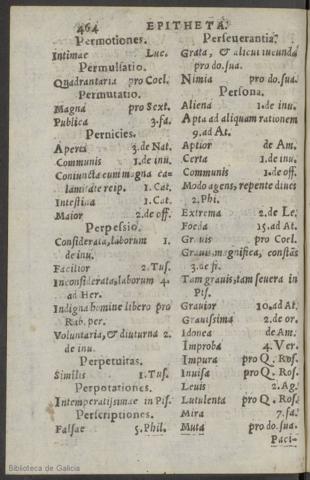 464 EPITHETA.
Permotiones.
Intimae Luc.
Permulsatio.
Quadrantaria pro Coel.
Permutatio.
Magna pro Sext.
Publica 3. fa.
Pernicies.
Aperta 3. de Nat.
Communis 1. de inu.
Coniuncta cum magna ca-
lamitate reip. 1. Cat.
Intestina 1. Cat.
Maior 2. de off.
Perpessio.
Considerata, laborum 1.
de inu.
Facilior 2. Tus.
Inconsiderata, laborum 4.
ad Her.
Indigna homine libero pro
Rab. per.
Voluntaria, & diuturna 2.
de inu.
Perpetuitas.
Similis 1. Tus.
Perpotationes.
Intemperatissimae in Pis.
Perscriptiones.
Falsae 5. Phil.
Perseuerantia.
Grata, & alicui iucunda
pro do. sua.
Nimia pro do. sua.
Persona.
Aliena 1. de inu.
Apta ad aliquam rationem
9. ad At.
Aptior de Am.
Certa 1. de inu.
Communis 1. de off.
Modo agens, repente diues
2. Phi.
Extrema 2. de Le.
Foeda 15. ad At.
Grauis pro Coel.
Grauis magnifica, constãs
3. de fi.
Tam grauis, tam seuera in
Pis.
Grauior 10. ad At.
Grauissima 2. de or.
Idonea de Am.
Improba 4. Ver.
Impura pro Q. Ros.
Inuisa pro Q. Ros.
Leuis 2. Ag.
Lutulenta pro Q. Ros.
Mira 7. fa.
Muta pro do. sua.
Paci-
Biblioteca de Galicia